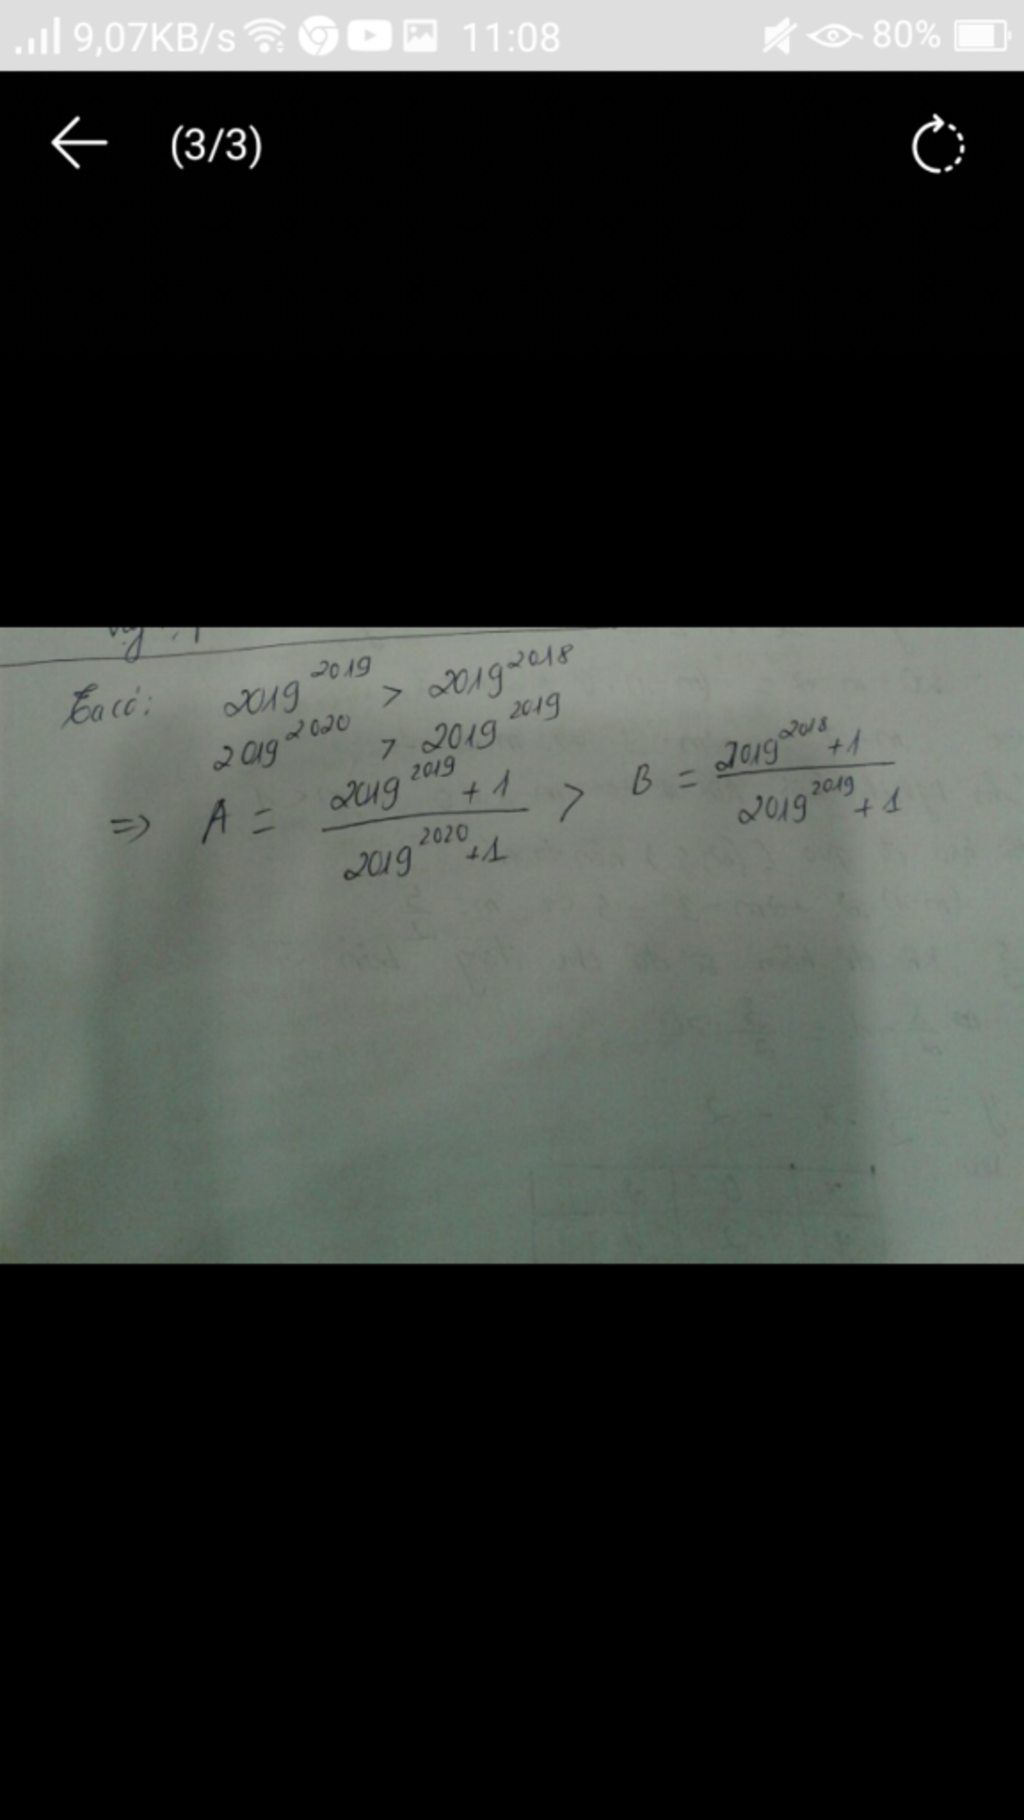 9,07KB/s 11:08 80%
(3/3)
Ta có: 2019^2019 > 2019^2018
2019^2020 > 2019^2019
=> A = (2019^2019 + 1)/(2019^2020 + 1) > B = (2019^2018 + 1)/(2019^2019 + 1)